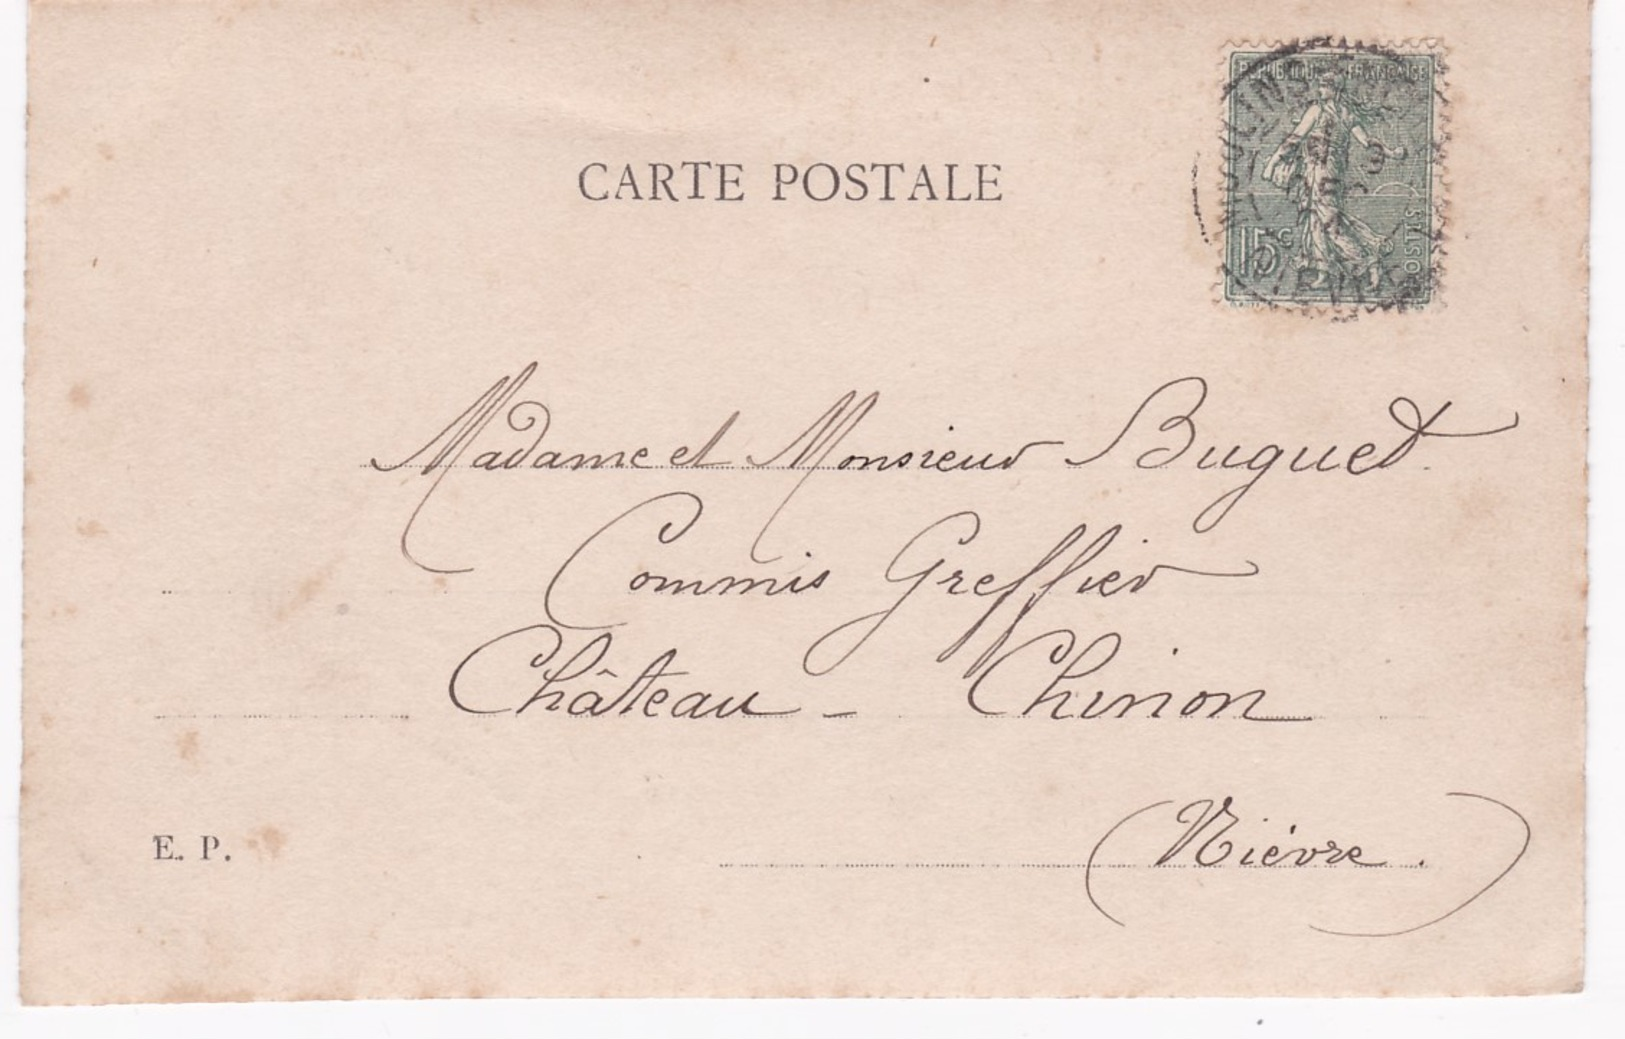 RÉPUBLIQUE FRANÇAISE
15c
POSTES
CARTE POSTALE
Madame et Monsieur Buguet
Commis Greffier
Château - Chinon
(Nièvre.)
E. P.